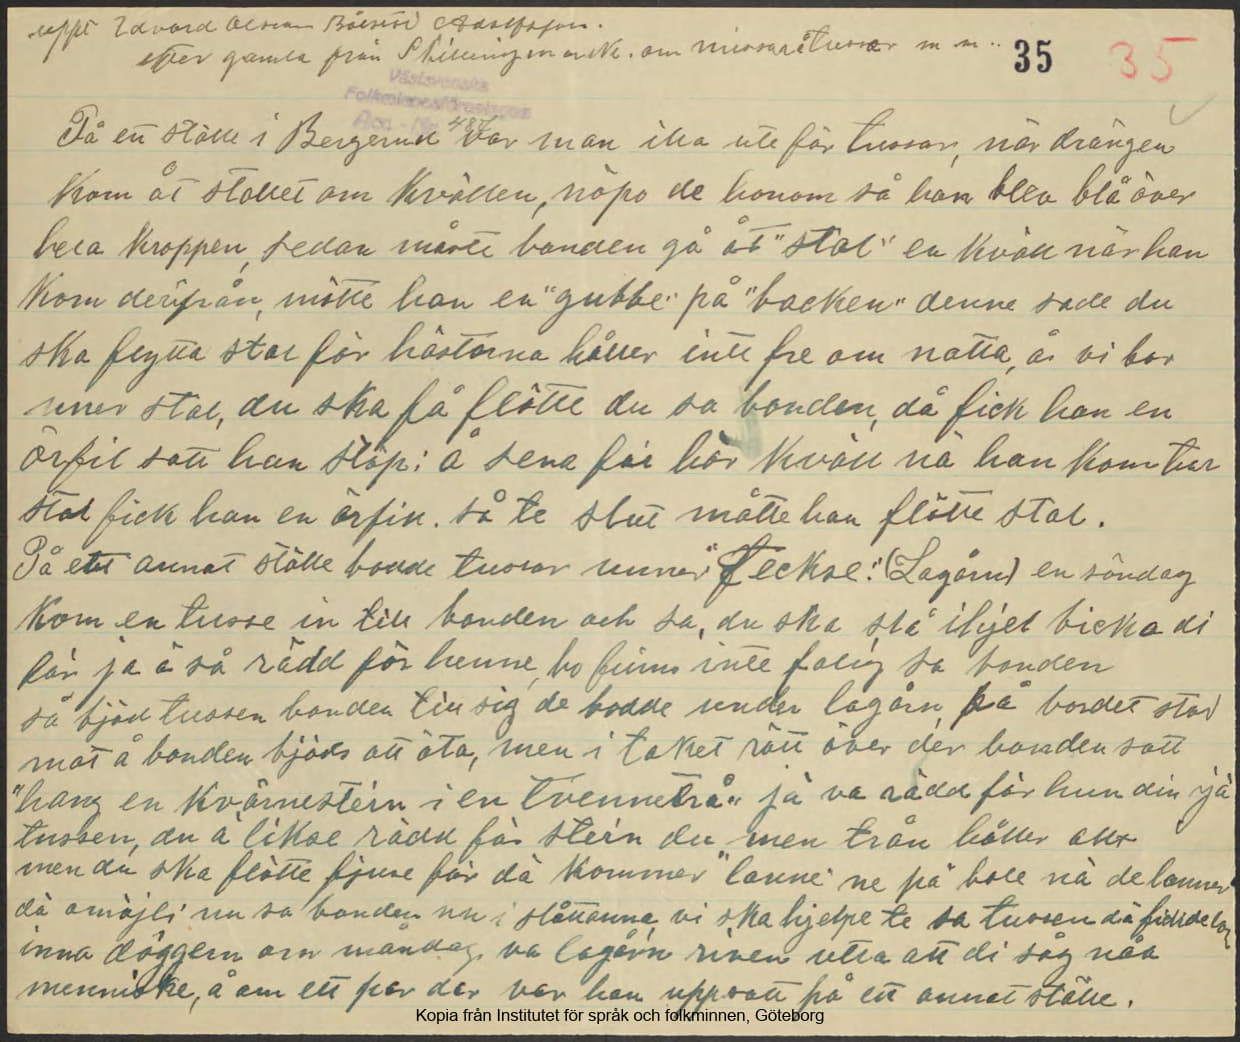 uppt Edvard Olsson Adolfsfors.
efter gamla från Skillingmark. om tussar m m..
35 35
Västsvenska
Folkminnesföreningen
Acc. - Nr. 484
På ett ställe i Bergerud var man illa ute för tussar, när drängen
kom åt stallet om kvällen, nöpo de honom så han blev blå över
hela kroppen, sedan måste bonden gå åt "stal" en kväll när han
kom derifrån, mötte han en "gubbe" på "backen" denne sade du
ska flytta stal för hästarna håller inte fre om natta, å vi bor
uner stal, du ska få flötte du sa bonden, då fick han en
örfil satt han stöp; å sena för hår kväll nä han kom tur
stal fick han en örfil. så te slut måtte han flötte stal.
På ett annat ställe bodde tussar uner "feckse" (Lagårn) en söndag
kom en tusse in till bonden och sa, du ska slå ihjel bicka di
för ja ä så rädd för henne, ho finns inte falig sa bonden
så bjöd tussen bonden till sig de bodde under lagårn, på bordet stod
mat å bonden bjöds att äta, men i taket rätt över der bonden satt
"hang en kvärnestein i en tvennetrå" ja va rädd för hun din ja
tussen, du ä likse rädd för stein du men trån håller allt
men du ska flötte fjuse för dä kommer "lanne" ne på bole nä de lanner
dä omöjli nu sa bonden nu i slåttanna, vi ska hjelpe te sa tussen dä
inna döggern om måndag, va lagårn riven utta att di såg nåa
menniske, å om ett par dar var han uppsatt på ett annat ställe.
Kopia från Institutet för språk och folkminnen, Göteborg